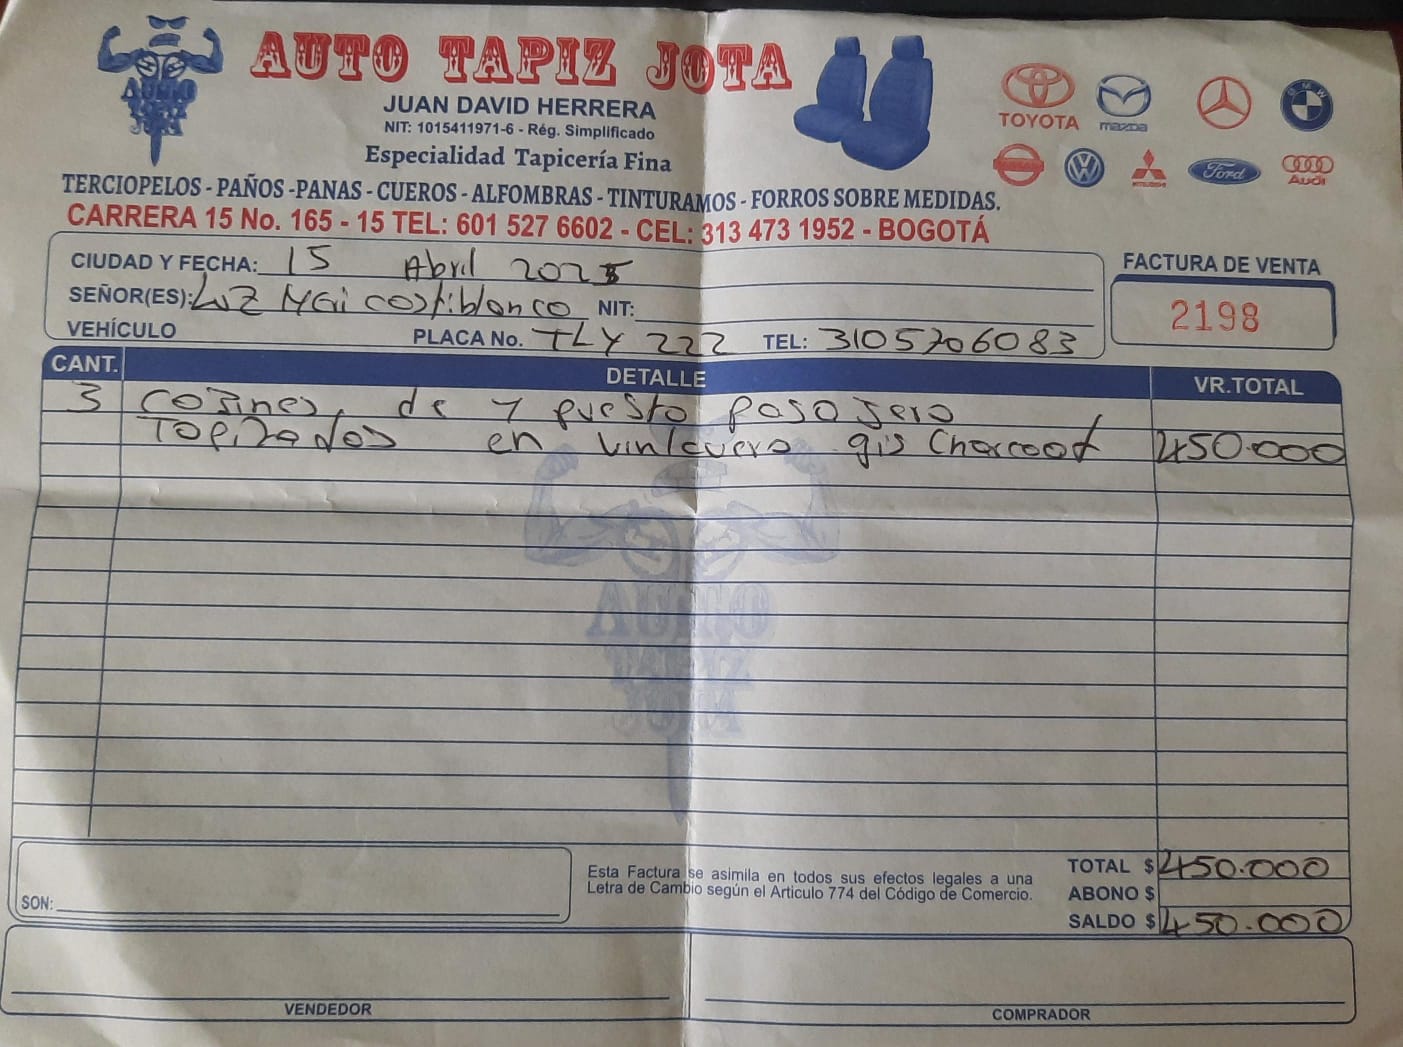 AUTO TAPIZ JOTA
AUTO
TAPIZ
JOTA
JUAN DAVID HERRERA
NIT: 1015411971-6 - Rég. Simplificado
Especialidad Tapicería Fina
TERCIOPELOS - PAÑOS -PANAS - CUEROS - ALFOMBRAS - TINTURAMOS - FORROS SOBRE MEDIDAS.
CARRERA 15 No. 165 - 15 TEL: 601 527 6602 - CEL: 313 473 1952 - BOGOTÁ
TOYOTA
mazda
BMW
MITSUBISHI
Ford
Audi
CIUDAD Y FECHA: 15 Abril 2025
SEÑOR(ES): Luz Mari costiblanco NIT:
VEHÍCULO PLACA No. TLY 222 TEL: 3105706083
FACTURA DE VENTA
2198
CANT. DETALLE VR.TOTAL
3 cojines, de y puesto pasajero
Tapizados en vinlcuero gis Charcoot 450.000
AUTO
TAPIZ
JOTA
SON:
Esta Factura se asimila en todos sus efectos legales a una
Letra de Cambio según el Articulo 774 del Código de Comercio.
TOTAL $ 450.000
ABONO $
SALDO $ 450.000
VENDEDOR
COMPRADOR